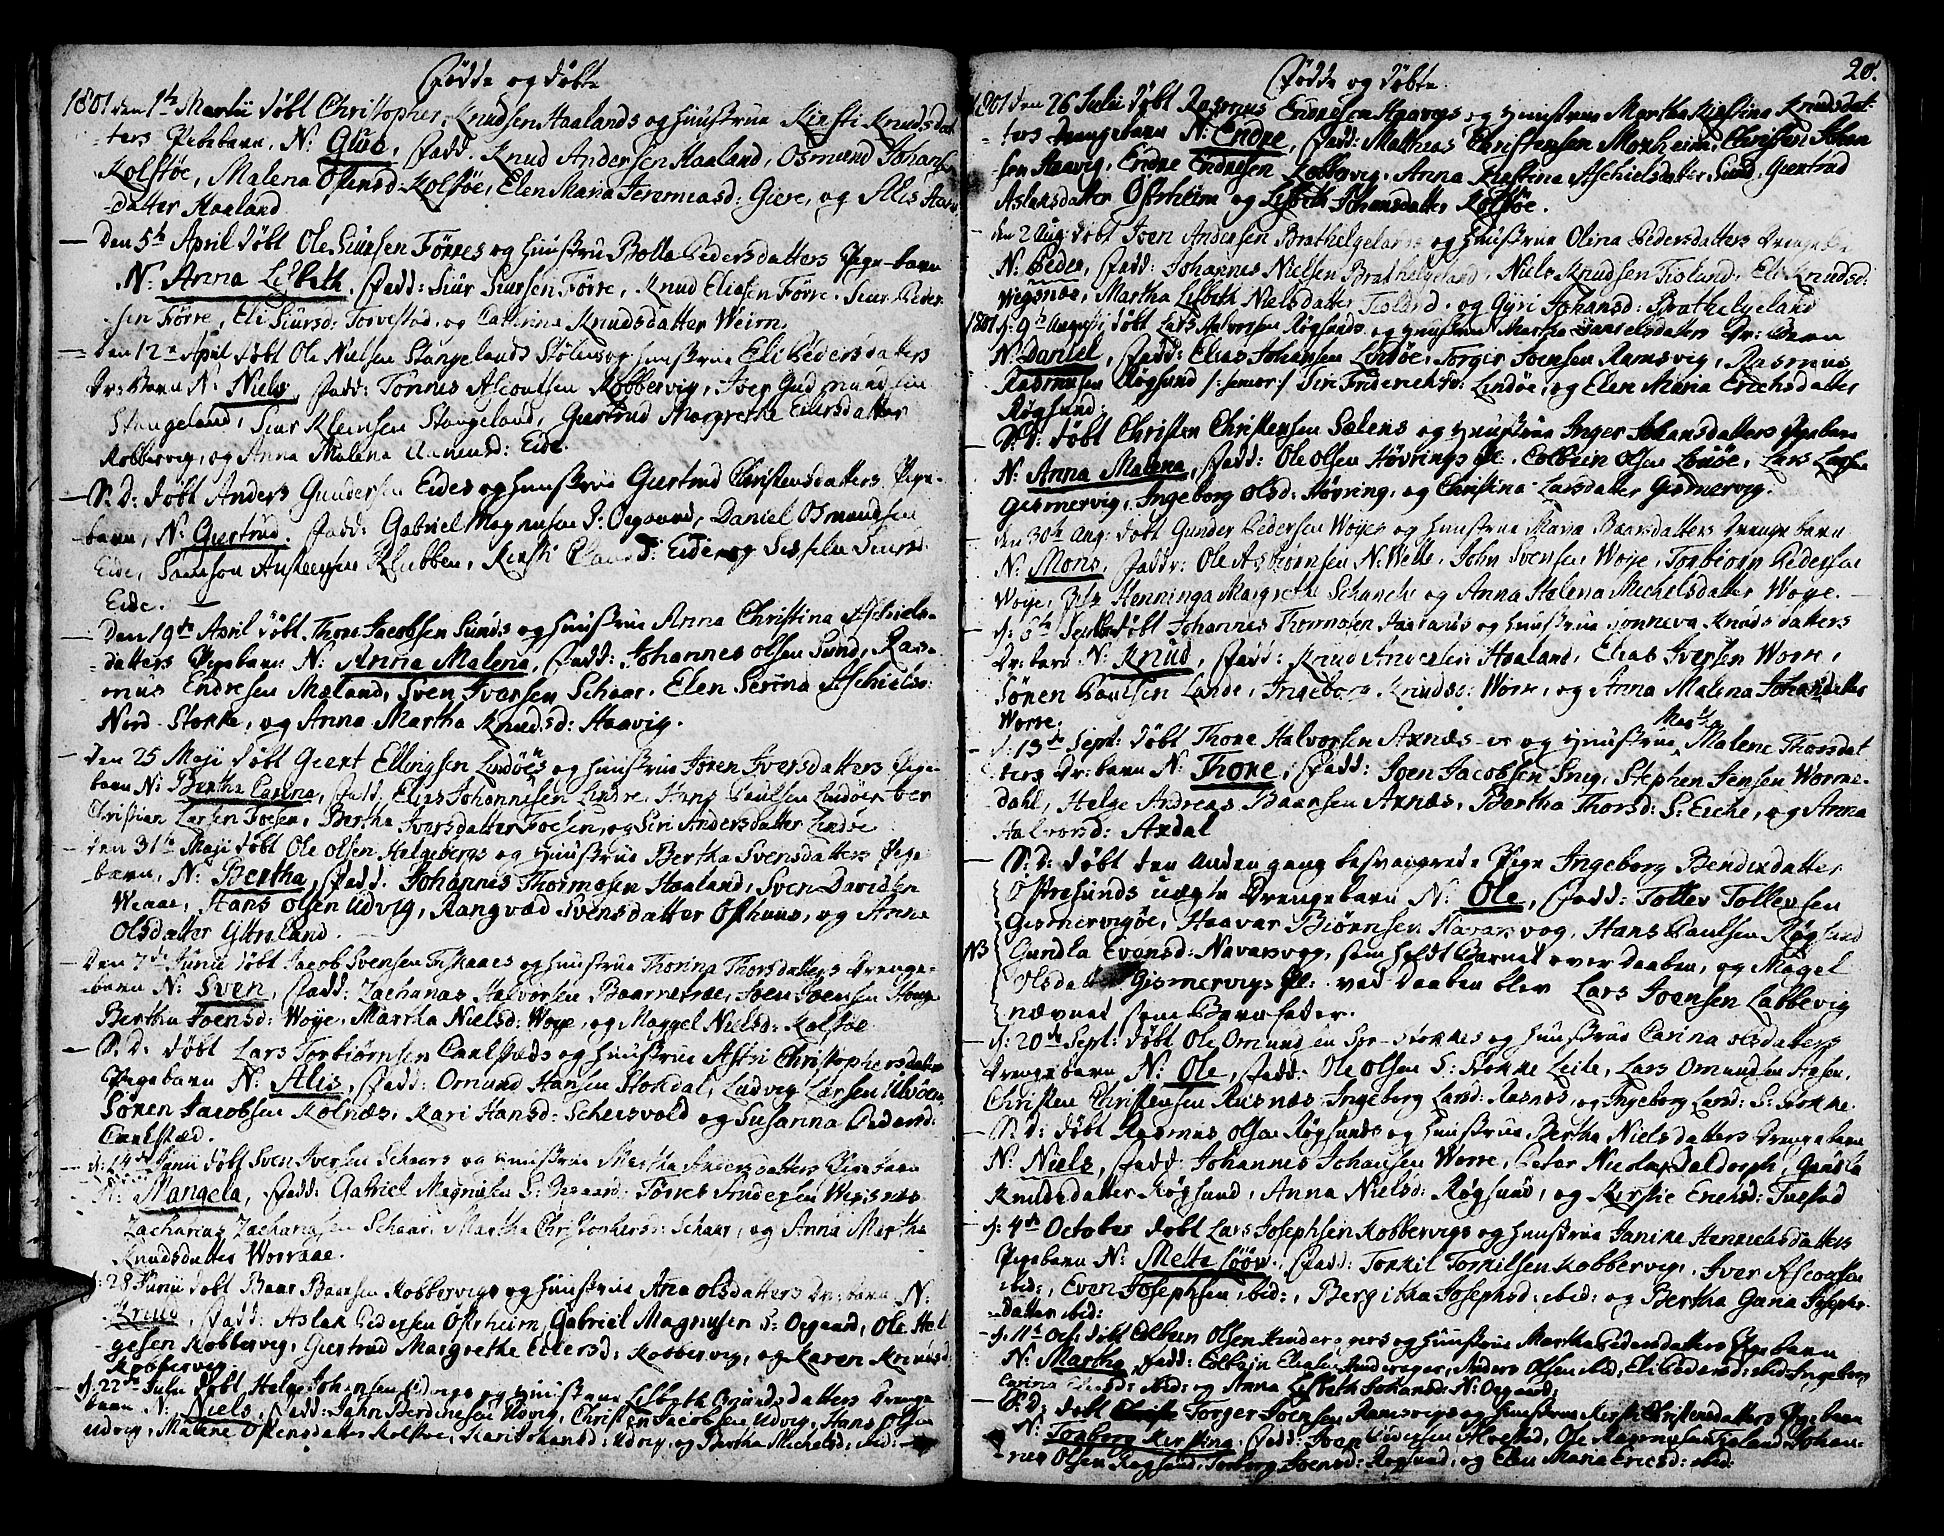 Fødde og døbte
1801 den 1te Martii døbt Christopher Knudsen Haalands og Huustrue Kirsti Knudsdat-
ters Pigebarn, N: Giue, Fadd. Knud Andersen Haaland, Osmund Johans
Kolstøe, Malena Ostensd: Kolstøe, Elen Maria Jeremiasd: Giere, og Alis Hans
datter Haaland
Den 5te April døbt Ole Siursen Førres og Huustru Bolla Pedersdatters Pige-barn
N: Anna Lisbeth. Fadd: Siur Siursen Førre, Knud Eliasen Førre. Siur Peder
sen Førre, Eli Siursd: Torvestad, og Cathrina Knudsdatter Weim.
Den 12te April døbt Ole Nielsen Stangelands Stølens og Huustrue Eli Pedersdatters
Dr: Barn N: Niels, Fadd: Tønnis Ascoutsen Kobbervig, Iver Gudmundsen
Stangeland, Siur Kleinsen Stangeland, Giertrud Margretha Eilersdatter
Kobbervig, og Anna Malena Aamunsd: Eide.
S: D: døbt Anders Gundersen Eides og Huustrue Giertrud Christensdatters Pige-
barn, N: Giertrud. Fadd: Gabriel Magnusen S: Øegaard, Daniel Osmundsen
Eide, Samson Klubben, Kirsti Eide og Siursd:
Eide.
Den 19de April døbt Thore Jacobsen Sunds og Huustrue Anna Christina Aschiels-
datters Pigebarn N: Anna Malena, Fadd: Johannes Olsen Sund, Ras-
mus Endresen Mæland, Sven Iversen Schaar, Elen Serina Aschielsd:
Nord-Stokke, og Anna Martha Knudsd: Haavig.
Den 25 Maji døbt Geert Ellingsen Lindøes og Huustrue Joren Iversdatters Pige-
barn N: Bertha Carina, Fadd. Elias Johannesen Lindøe, Hans Poulsen Lindøe
Christian Larsen Foesen, Bertha Iversdatter Foesen, og Siri Andersdatter Lindøe
Den 31te Maji døbt Ole Olsen Helgebergs og Huustrue Bertha Svensdatters Pige-
barn, N: Bertha, Fadd. Johannes Thormosen Haaland, Sven Davidsen
Weaae, Hans Olsen Udvig, Rangvad Svensdatter Osthuus, og Anna
Olsdatter Ytterland.
Den 7de Junii døbt Jacob Svensen Fiskaaes og Huustrue Thorina Thorsdatters Drenge-
barn N: Sven, Fadd: Zacharias Halvorsen Baarnetræe, Joen Joensen Hauge
Bertha Joensd: Woje, Martha Nielsd: Woje, og Maggel Nielsd: Kolstøe
S: D: døbt Lars Torbiørnsen Carlstæds og Huustrue Astri Christophersdatters
Pigebarn N: Alis, Fadd: Omund Hansen Stokdal, Ludvig Larsen Ulvøen,
Søren Jacobsen Kolnæs, Kari Hansd: Scheisvold og Susanna Pedersd:
Carlstæd.
d: 14de Junii døbt Sven Iversen Schaars og Huustrue Martha Andersdatters Pigebarn
N: Mangela, Fadd: Gabriel Magnusen S: Øegaard, Tørres
Zacharias Zachariasen Schaar, Martha Christophersd: Schaar, og Anna Martha
Knudsdatter Worraae.
d: 28 Junii døbt Baar Baarsen Kobbervigs og Huustrue Ana Olsdatters Dr: barn N:
Knud, Fadd: Aslak Pedersen Østrheim, Gabriel Magnusen S: Øegaard, Ole Hel
gesen Kobbervig, Giertrud Margrethe Eilersd: Kobbervig, og Karen Knudsd:
Kobbervig.
d: 22de Julii døbt Helge og Huustrue Lisbeth Omundsdatters Drenge
barn N: Niels, Fadd: Jahn Berdinesen Udvig, Christen Jacobsen Udvig, Hans Olsen
Udvig, Malene Ostensdatter Kolstøe, Kari Johansd: Udvig, og Bertha Michelsd: ibid:
20.
Fødde og døbte
1801 den 26 Julii døbt Rasmus Endresen Haavigs og Huustrue Martha Kirstina Knudsdat-
ters Drengebarn N: Endre, Fadd: Mathias Christensen Moxheim, Christen Johan
sen Haavig, Endre Endresen Kobbervig, Anna Kirstina Aschielsdatter Sund, Giertrud
Aslaksdatter Østrheim og Lisbeth Johansdatter Kolstøe.
den 2 Aug: døbt Joen Andersen Brathelgelands og Huustrue Olina Pedersdatters Drenge
N: Peder, Fadd: Johannes Nielsen Brathelgeland, Niels Knudsen Tioland, Eli Knudsd:
Wigsnæe, Martha Lisbeth Nielsdatter Tioland, og Gyri Johansd: Brathelgeland
1801 d: 9de Augusti døbt Lars Halvorsen Røgsunds og Huustrue Martha Danielsdatters Dr: Barn
N: Daniel, Fadd: Elias Johansen Lindøe, Torgir Joensen Ramsvig, Rasmus
Rasmusen Røgsund /: senior :/ Siri Friderichsd: Lindøe, og Elen Maria Erichsdatter
Røgsund.
S: D: døbt Christen Christensen Salens og Huustrue Inger Johansdatters Pigebarn
N: Anna Malena, Fadd: Ole Olsen Høvrings Pl. Colbein Olsen Lindøe, Lars Larsen
Gismervig, Ingeborg Olsd: Høvring, og Christina Larsdatter Gismervig.
den 30te Aug: døbt Gunder Pedersen Wojes og Huustrue Maria Baarsdatters Drengebarn
N: Mons, Fadd: Ole Asbiørnsen N: Welle, John Svensen Woje, Torbiørn Pedersen
Woje, Henninga Margretha Schanche og Anna Malena Michelsdatter Woje.
d: 6te Septbr døbt Johannes Thormosen Haalands og Huustrue Sønneva Knudsdatters
Dr: barn N: Knud, Fadd: Knud Andersen Haaland, Elias Iversen Worre,
Søren Poulsen Lande, Ingeborg Knudsd: Worre, og Anna Malena Johansdatter
Worre.
d: 13de Sept: døbt Thore Halvorsen Axnæs og Huustrue Martha Malene Thorsdat
ters Dr: barn N: Thore, Fadd: Joen Jacobsen Snig, Stephen Jensen Worme-
dahl, Helge Andreas Baarsen Axnæs, Bertha Thorsd: S: Eiche, og Anna
Halvorsd: Axdal
S: D: døbt den anden gang besvangrede Pige Ingeborg Bendixdatter
Ostresunds uægte Drengebarn N: Ole, Fadd: Tollev Tollevsen
Gismervigøe, Haavar Biørnsen Navarsvog, Hans Poulsen Røgsund
NB Gundla Evensd: Navarsvog, som holdt Barnet over Daaben, og Magel
Olsdatter Gismervigs Pl: ved Daaben blev Lars Joensen Labbevig
nævnet som Barnefader.
d: 20de Sept: døbt Ole Omundsen Søre-Stokkes og Huustrue Carina Olsdatters
Drengebarn N: Ole, Fadd: Ole Olsen S: Stokke Leite, Lars Omundsen
Christen Christensen Rusnæs, Ingeborg Larsd: Rasnæs, og Ingeborg Larsd: S: Stokke.
S: D: døbt Rasmus Olsen Røgsunds og Huustrue Bertha Nielsdatters Drengebarn
N: Niels, Fadd: Johannes Johansen Worre, Peter Nicolay Daldorph, Gundla
Knudsdatter Røgsund, Anna Nielsd: Røgsund, og Kirstie Erichsd: Tuestad
d: 4de October døbt Lars Josephsen Kobbervigs og Huustrue Janike Henrichsdatters
Pigebarn N: Mette Siøv. Fadd: Torkil Torkilsen Kobbervig, Iver Ascoutsen
ibid:, Even Josephsen ibid:, Bergitha Josephsd: ibid: og Bertha Gana Josephs-
datter ibid:
d: 11te Oct: døbt Colbein Olsen og Huustrue Martha Pedersdatters Pigebarn
N: Martha, Fadd: Colbein Eliasen, Anders Olsen ibid, Eli Pedersd: ibid: Ingeborg
Carina ibid: og Anna Lisbeth Johansd: N: Øegaard.
S: D: døbt Torger Joensen Ramsvigs og Huustrue Kirsti Christensdatters Pigebarn
N: Ingborg Kirstina. Fadd: Iver Ole Rasmusen Johan-
nes Olsen Røgsund, Ingborg Joensd: Røgsund, og Elen Maria Ericsd: ibid: